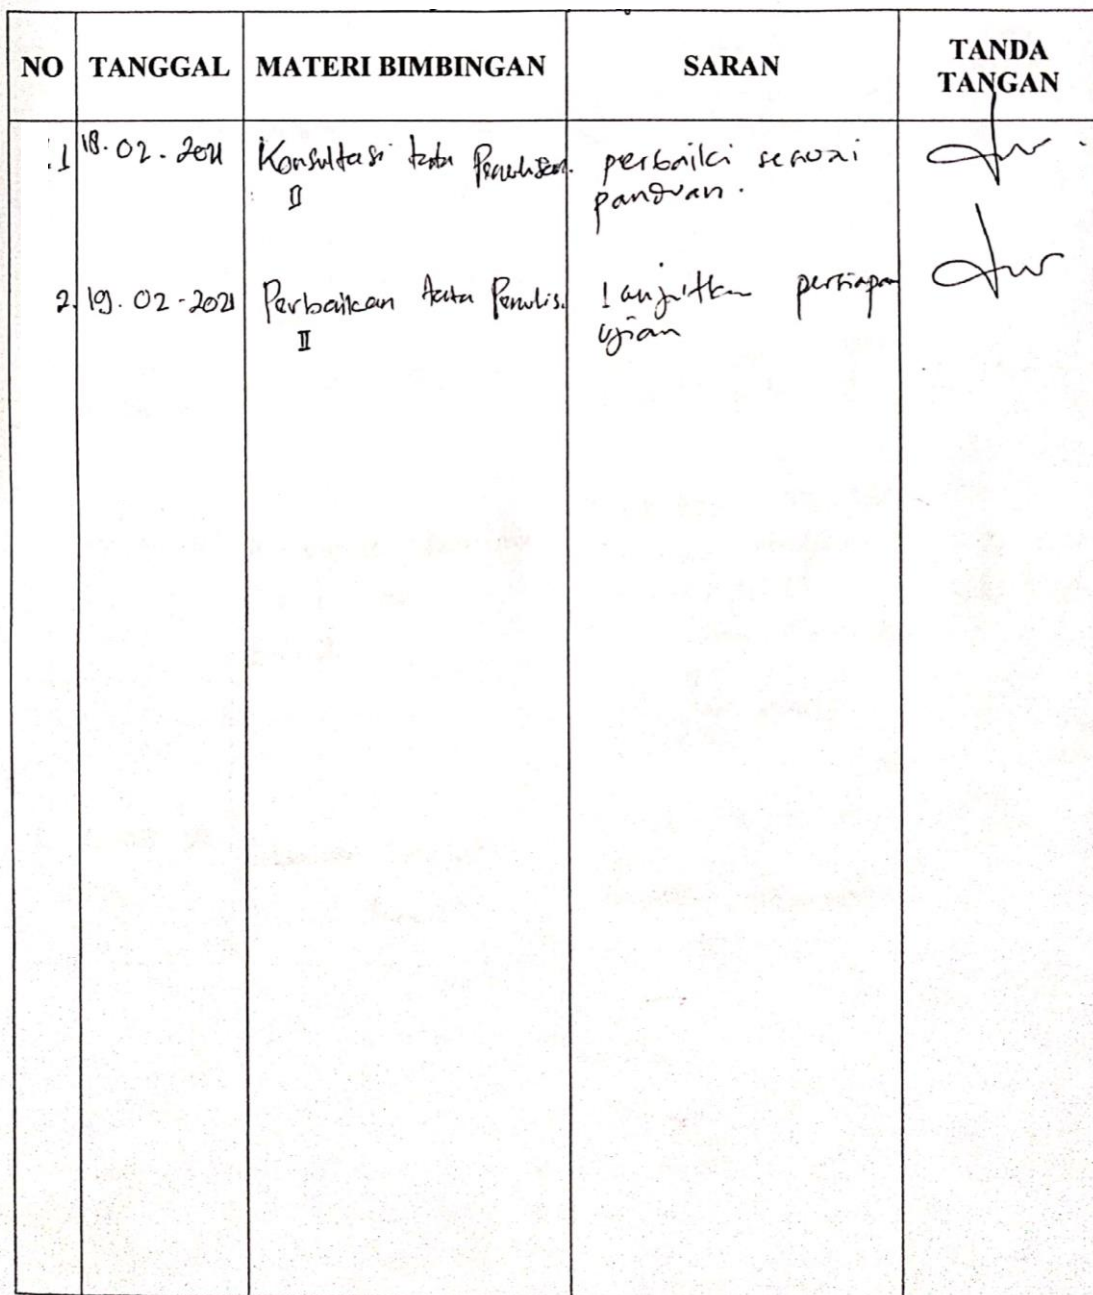 NO TANGGAL MATERI BIMBINGAN SARAN TANDA TANGAN
1 18. 02 - 2021 Konsultasi tata Penulisan. perbaiki sesuai
II panduan.
2. 19. 02 - 2021 Perbaikan tata Penulis. lanjutkan persiapan
II ujian